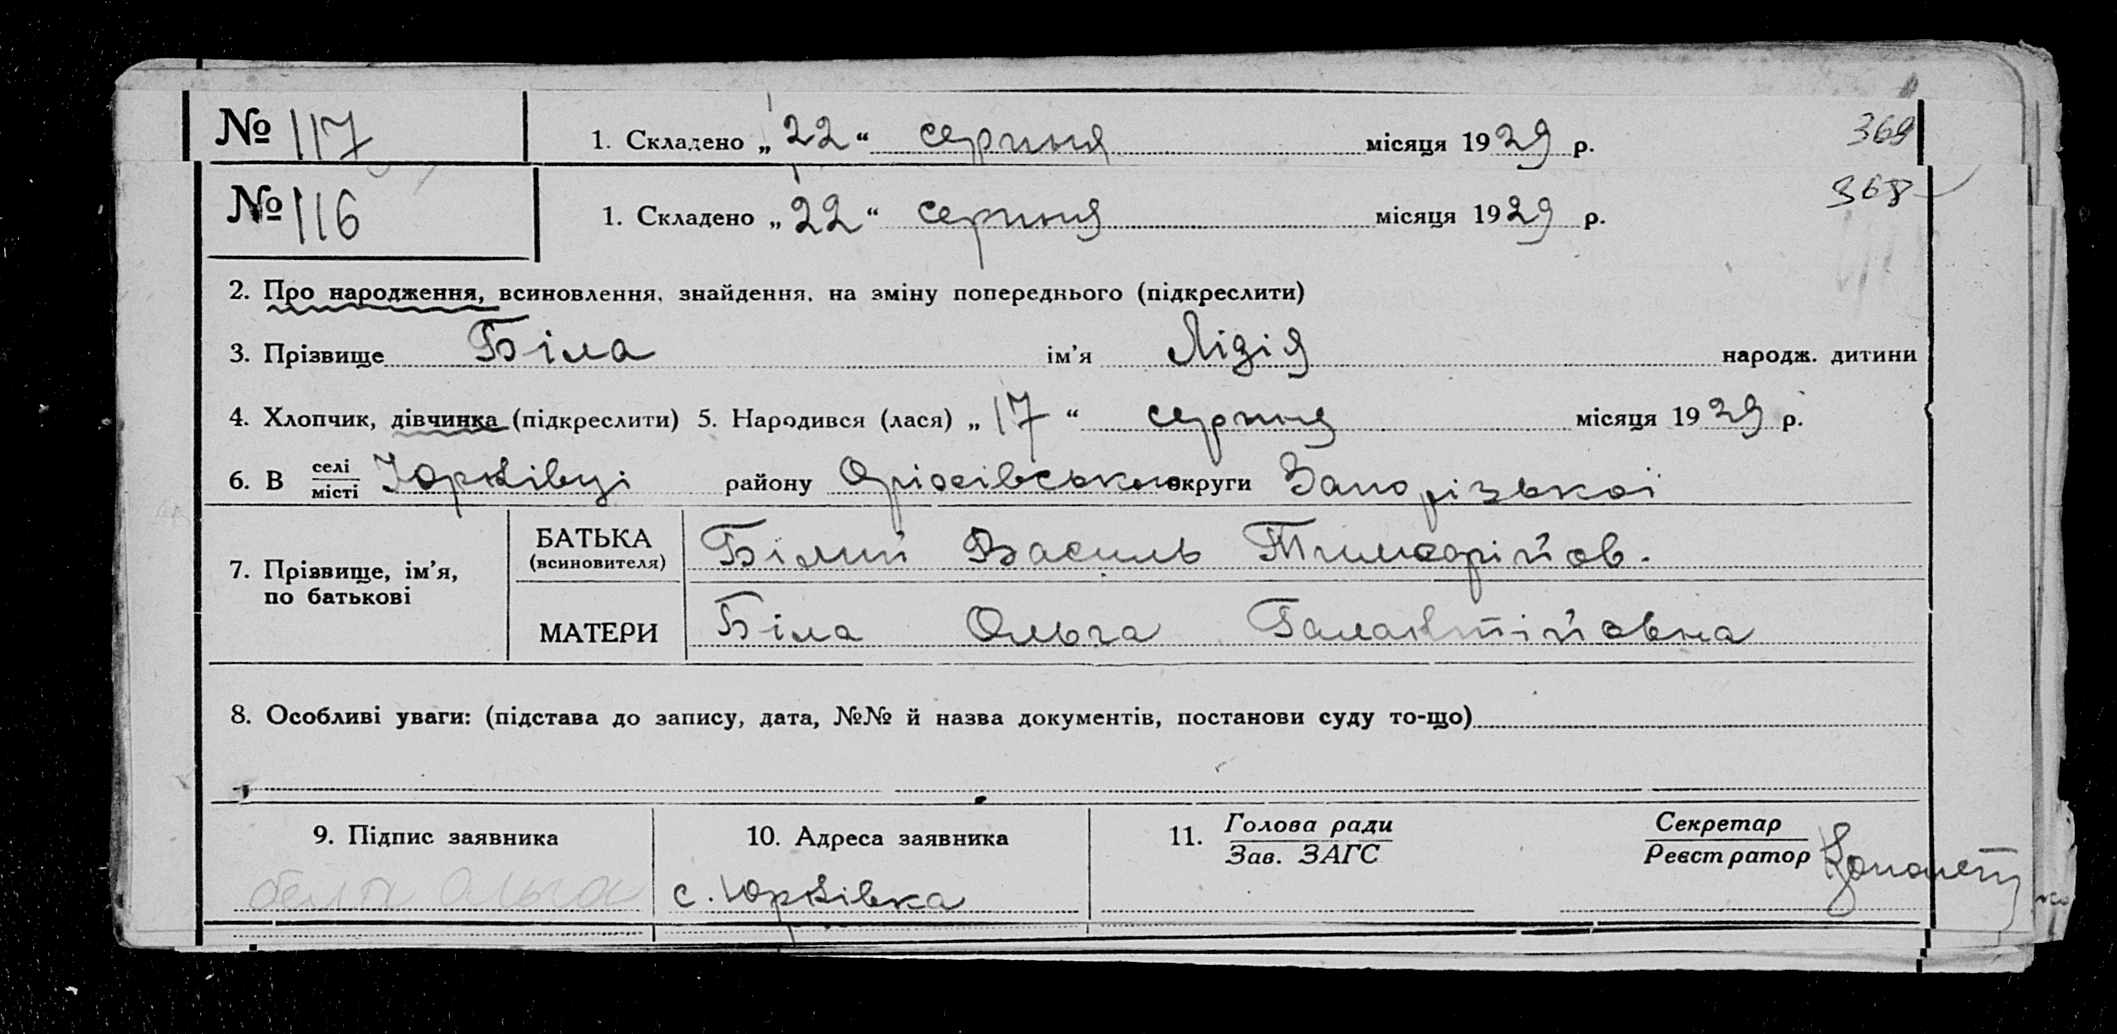 № 117 1. Складено „22“ серпня місяця 1929 р. 369
№ 116 1. Складено „22“ серпня місяця 1929 р. 368
2. Про народження, всиновлення, знайдення, на зміну попереднього (підкреслити)
3. Прізвище Біла ім’я Лідія народж. дитини
4. Хлопчик, дівчинка (підкреслити) 5. Народився (лася) „17“ серпня місяця 1929 р.
6. В селі місті Юрківці району Оріхівського округи Запорізької
7. Прізвище, ім’я, по батькові
БАТЬКА (всиновителя) Білий Василь
МАТЕРИ Біла Ольга
8. Особливі уваги: (підстава до запису, дата, №№ й назва документів, постанови суду то-що)
9. Підпис заявника 10. Адреса заявника 11. Голова ради Зав. ЗАГС Секретар Реєстратор
Ольга с. Юрківка